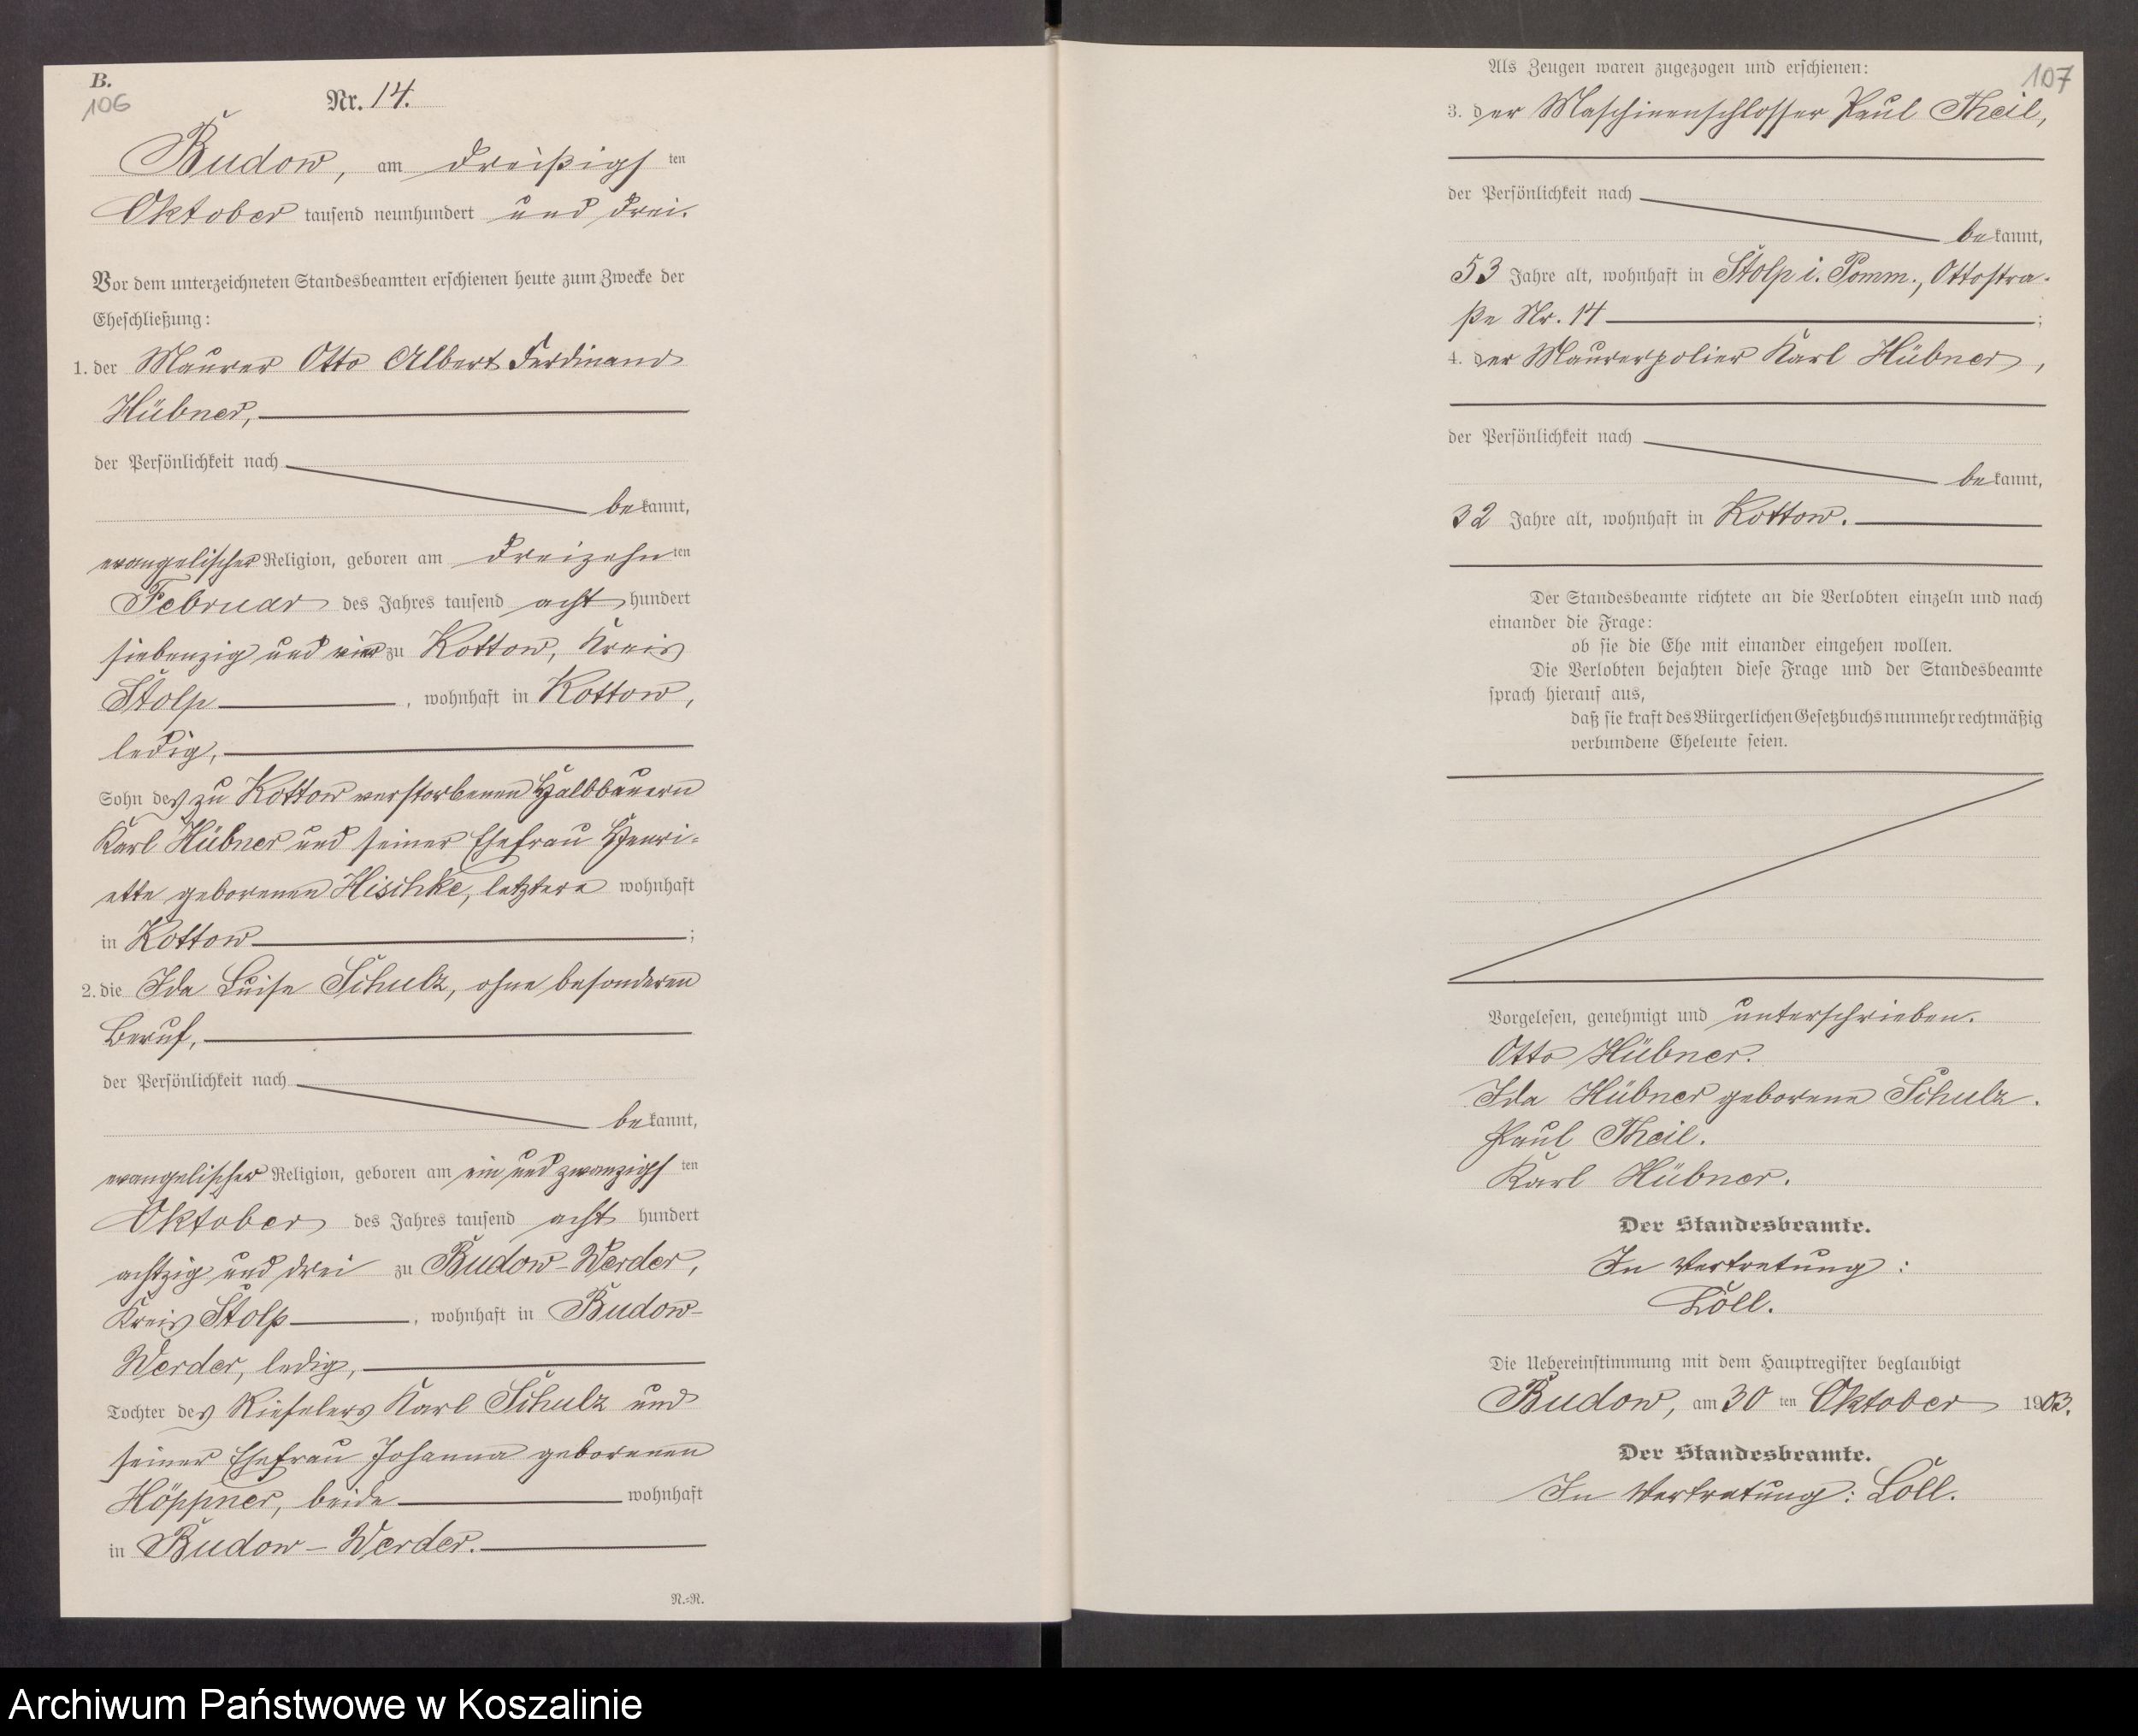 B.
106
Nr. 14.
Budow, am dreißigsten
Oktober tausend neunhundert und drei.
Vor dem unterzeichneten Standesbeamten erschienen heute zum Zwecke der
Eheschließung:
1. der Maurer Otto Albert Ferdinand
Hübner,
der Persönlichkeit nach
bekannt,
evangelischer Religion, geboren am dreizehnten
Februar des Jahres tausend acht hundert
siebenzig und vier zu Kottow, Kreis
Stolp, wohnhaft in Kottow,
ledig,
Sohn des zu Kottow verstorbenen Halbbauern
Karl Hübner und seiner Ehefrau Henri-
ette geborenen Hischke, letztere wohnhaft
in Kottow;
2. die Ida Luise Schulz, ohne besonderen
Beruf,
der Persönlichkeit nach
bekannt,
evangelischer Religion, geboren am ein und zwanzigsten
Oktober des Jahres tausend acht hundert
achtzig und drei zu Budow-Werder,
Kreis Stolp, wohnhaft in Budow-
Werder, ledig,
Tochter des Rieselers Karl Schulz und
seiner Ehefrau Johanna geborenen
Höppner, beide wohnhaft
in Budow-Werder.
N.=N.
107
Als Zeugen waren zugezogen und erschienen:
3. der Maschinenschlosser Paul Theil,
der Persönlichkeit nach
bekannt,
53 Jahre alt, wohnhaft in Stolp i. Pomm., Ottostra-
ße Nr. 14;
4. der Maurerpolier Karl Hübner,
der Persönlichkeit nach
bekannt,
32 Jahre alt, wohnhaft in Kottow.
Der Standesbeamte richtete an die Verlobten einzeln und nach
einander die Frage:
ob sie die Ehe mit einander eingehen wollen.
Die Verlobten bejahten diese Frage und der Standesbeamte
sprach hierauf aus,
daß sie kraft des Bürgerlichen Gesetzbuchs nunmehr rechtmäßig
verbundene Eheleute seien.
Vorgelesen, genehmigt und unterschrieben.
Otto Hübner.
Ida Hübner geborene Schulz.
Paul Theil.
Karl Hübner.
Der Standesbeamte.
In Vertretung:
Löll.
Die Uebereinstimmung mit dem Hauptregister beglaubigt
Budow, am 30ten Oktober 1903.
Der Standesbeamte.
In Vertretung: Löll.
Archiwum Państwowe w Koszalinie